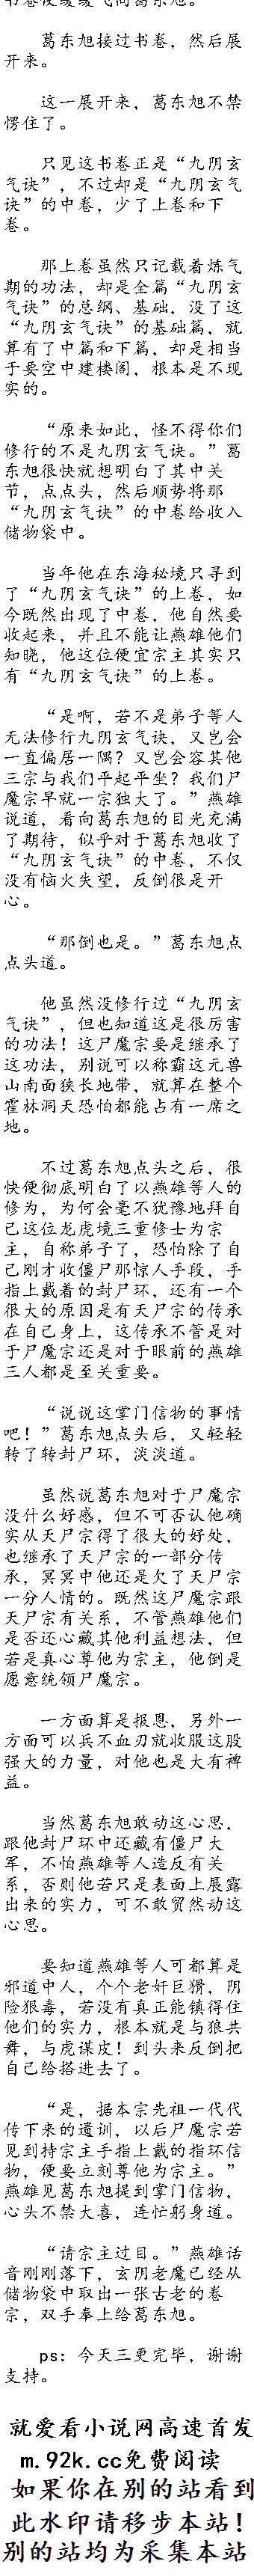 书卷便缓缓飞向葛东旭。
葛东旭接过书卷，然后展
开来。
这一展开来，葛东旭不禁
愣住了。
只见这书卷正是“九阴玄
气诀”，不过却是“九阴玄气
诀”的中卷，少了上卷和下
卷。
那上卷虽然只记载着炼气
期的功法，却是全篇“九阴玄
气诀”的总纲、基础，没了这
“九阴玄气诀”的基础篇，就
算有了中篇和下篇，却是相当
于要空中建楼阁，根本是不现
实的。
“原来如此，怪不得你们
修行的不是九阴玄气诀。”葛
东旭很快就想明白了其中关
节，点点头，然后顺势将那
“九阴玄气诀”的中卷给收入
储物袋中。
当年他在东海秘境只寻到
了“九阴玄气诀”的上卷，如
今既然出现了中卷，他自然要
收起来，并且不能让燕雄他们
知晓，他这位便宜宗主其实只
有“九阴玄气诀”的上卷。
“是啊，若不是弟子等人
无法修行九阴玄气诀，又岂会
一直偏居一隅？又岂会容其他
三宗与我们平起平坐？我们尸
魔宗早就一宗独大了。”燕雄
说道，看向葛东旭的目光充满
了期待，似乎对于葛东旭收了
“九阴玄气诀”的中卷，不仅
没有恼火失望，反倒很是开
心。
“那倒也是。”葛东旭点
点头道。
他虽然没修行过“九阴玄
气诀”，但也知道这是很厉害
的功法！这尸魔宗要是继承了
这功法，别说可以称霸这元兽
山南面狭长地带，就算在整个
霍林洞天恐怕都能占有一席之
地。
不过葛东旭点头之后，很
快便彻底明白了以燕雄等人的
修为，为何会毫不犹豫地拜自
己这位龙虎境三重修士为宗
主，自称弟子了，恐怕除了自
己刚才收僵尸那惊人手段，手
指上戴着的封尸环，还有一个
很大的原因是有天尸宗的传承
在自己身上，这传承不管是对
于尸魔宗还是对于眼前的燕雄
三人都是至关重要。
“说说这掌门信物的事情
吧！”葛东旭点头后，又轻轻
转了转封尸环，淡淡道。
虽然说葛东旭对于尸魔宗
没什么好感，但不可否认他确
实从天尸宗得了很大的好处，
也继承了天尸宗的一部分传
承，冥冥中他还是欠了天尸宗
一分人情的。既然这尸魔宗跟
天尸宗有关系，不管燕雄他们
是否还心藏其他利益想法，但
若是真心尊他为宗主，他倒是
愿意统领尸魔宗。
一方面算是报恩，另外一
方面可以兵不血刃就收服这股
强大的力量，对他也是大有裨
益。
当然葛东旭敢动这心思，
跟他封尸环中还藏有僵尸大
军，不怕燕雄等人造反有关
系，否则他若只是表面上展露
出来的实力，可不敢贸然动这
心思。
要知道燕雄等人可都算是
邪道中人，个个老奸巨猾，阴
险狠毒，若没有真正能镇得住
他们的实力，根本就是与狼共
舞，与虎谋皮！到头来反倒把
自己给搭进去了。
“是，据本宗先祖一代代
传下来的遗训，以后尸魔宗若
见到持宗主手指上戴的指环信
物，便要立刻尊他为宗主。”
燕雄见葛东旭提到掌门信物，
心头不禁大喜，连忙躬身道。
“请宗主过目。”燕雄话
音刚刚落下，玄阴老魔已经从
储物袋中取出一张古老的卷
宗，双手奉上给葛东旭。
ps：今天三更完毕，谢谢
支持。
就爱看小说网高速首发
m.92k.cc免费阅读
如果你在别的站看到
此水印请移步本站！
别的站均为采集本站